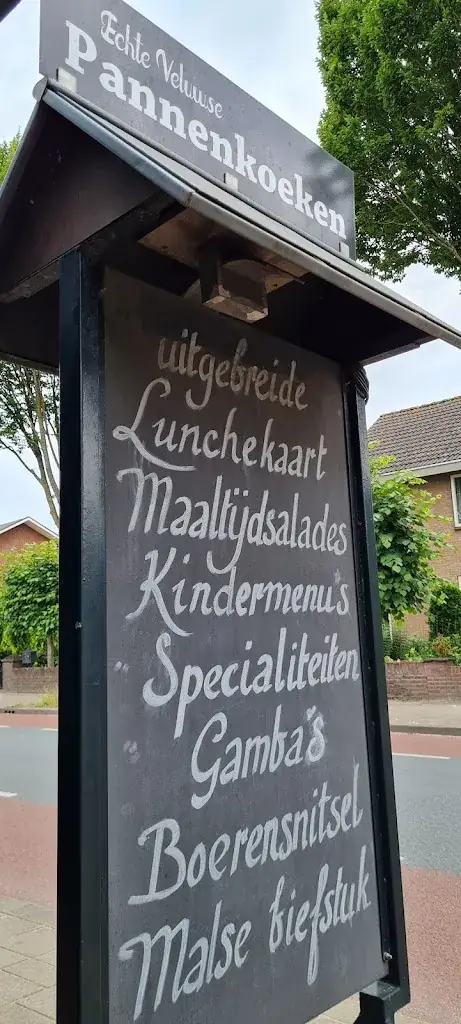 Echte Veluwse
Pannenkoeken
uitgebreide
Lunchekaart
Maaltijdsalades
Kindermenu's
Specialiteiten
Gamba's
Boerensnitsel
Malse biefstuk